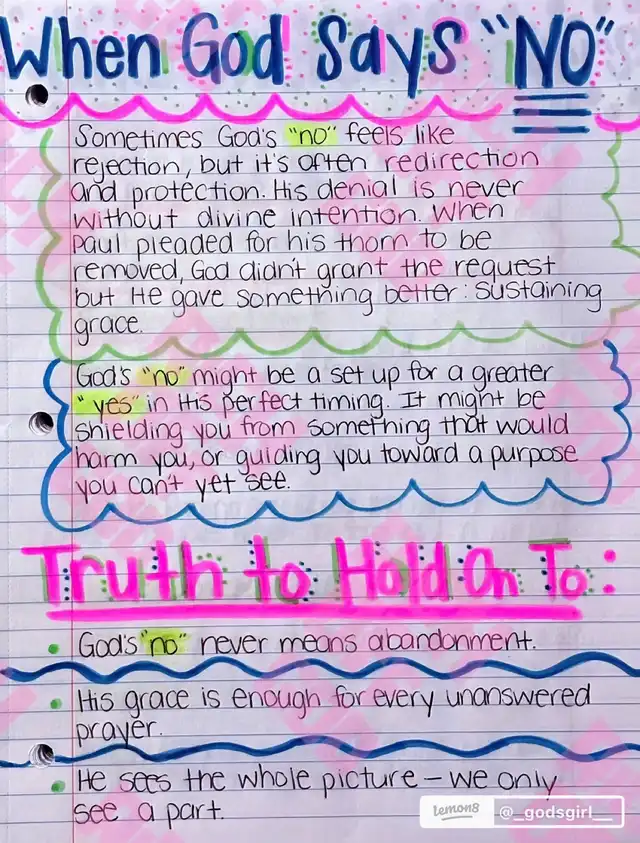 When God Says "NO"
Sometimes God's "no" feels like
rejection, but it's often redirection
and protection. His denial is never
without divine intention. When
Paul pleaded for his thorn to be
removed, God didn't grant the request
but He gave something better: sustaining
grace.
God's "no" might be a set up for a greater
"yes" in His perfect timing. It might be
shielding you from something that would
harm you, or guiding you toward a purpose
you can't yet see.
Truth to Hold On To:
• God's "no" never means abandonment.
• His grace is enough for every unanswered
prayer.
• He sees the whole picture – we only
see a part.
lemon8 @_godsgirl__